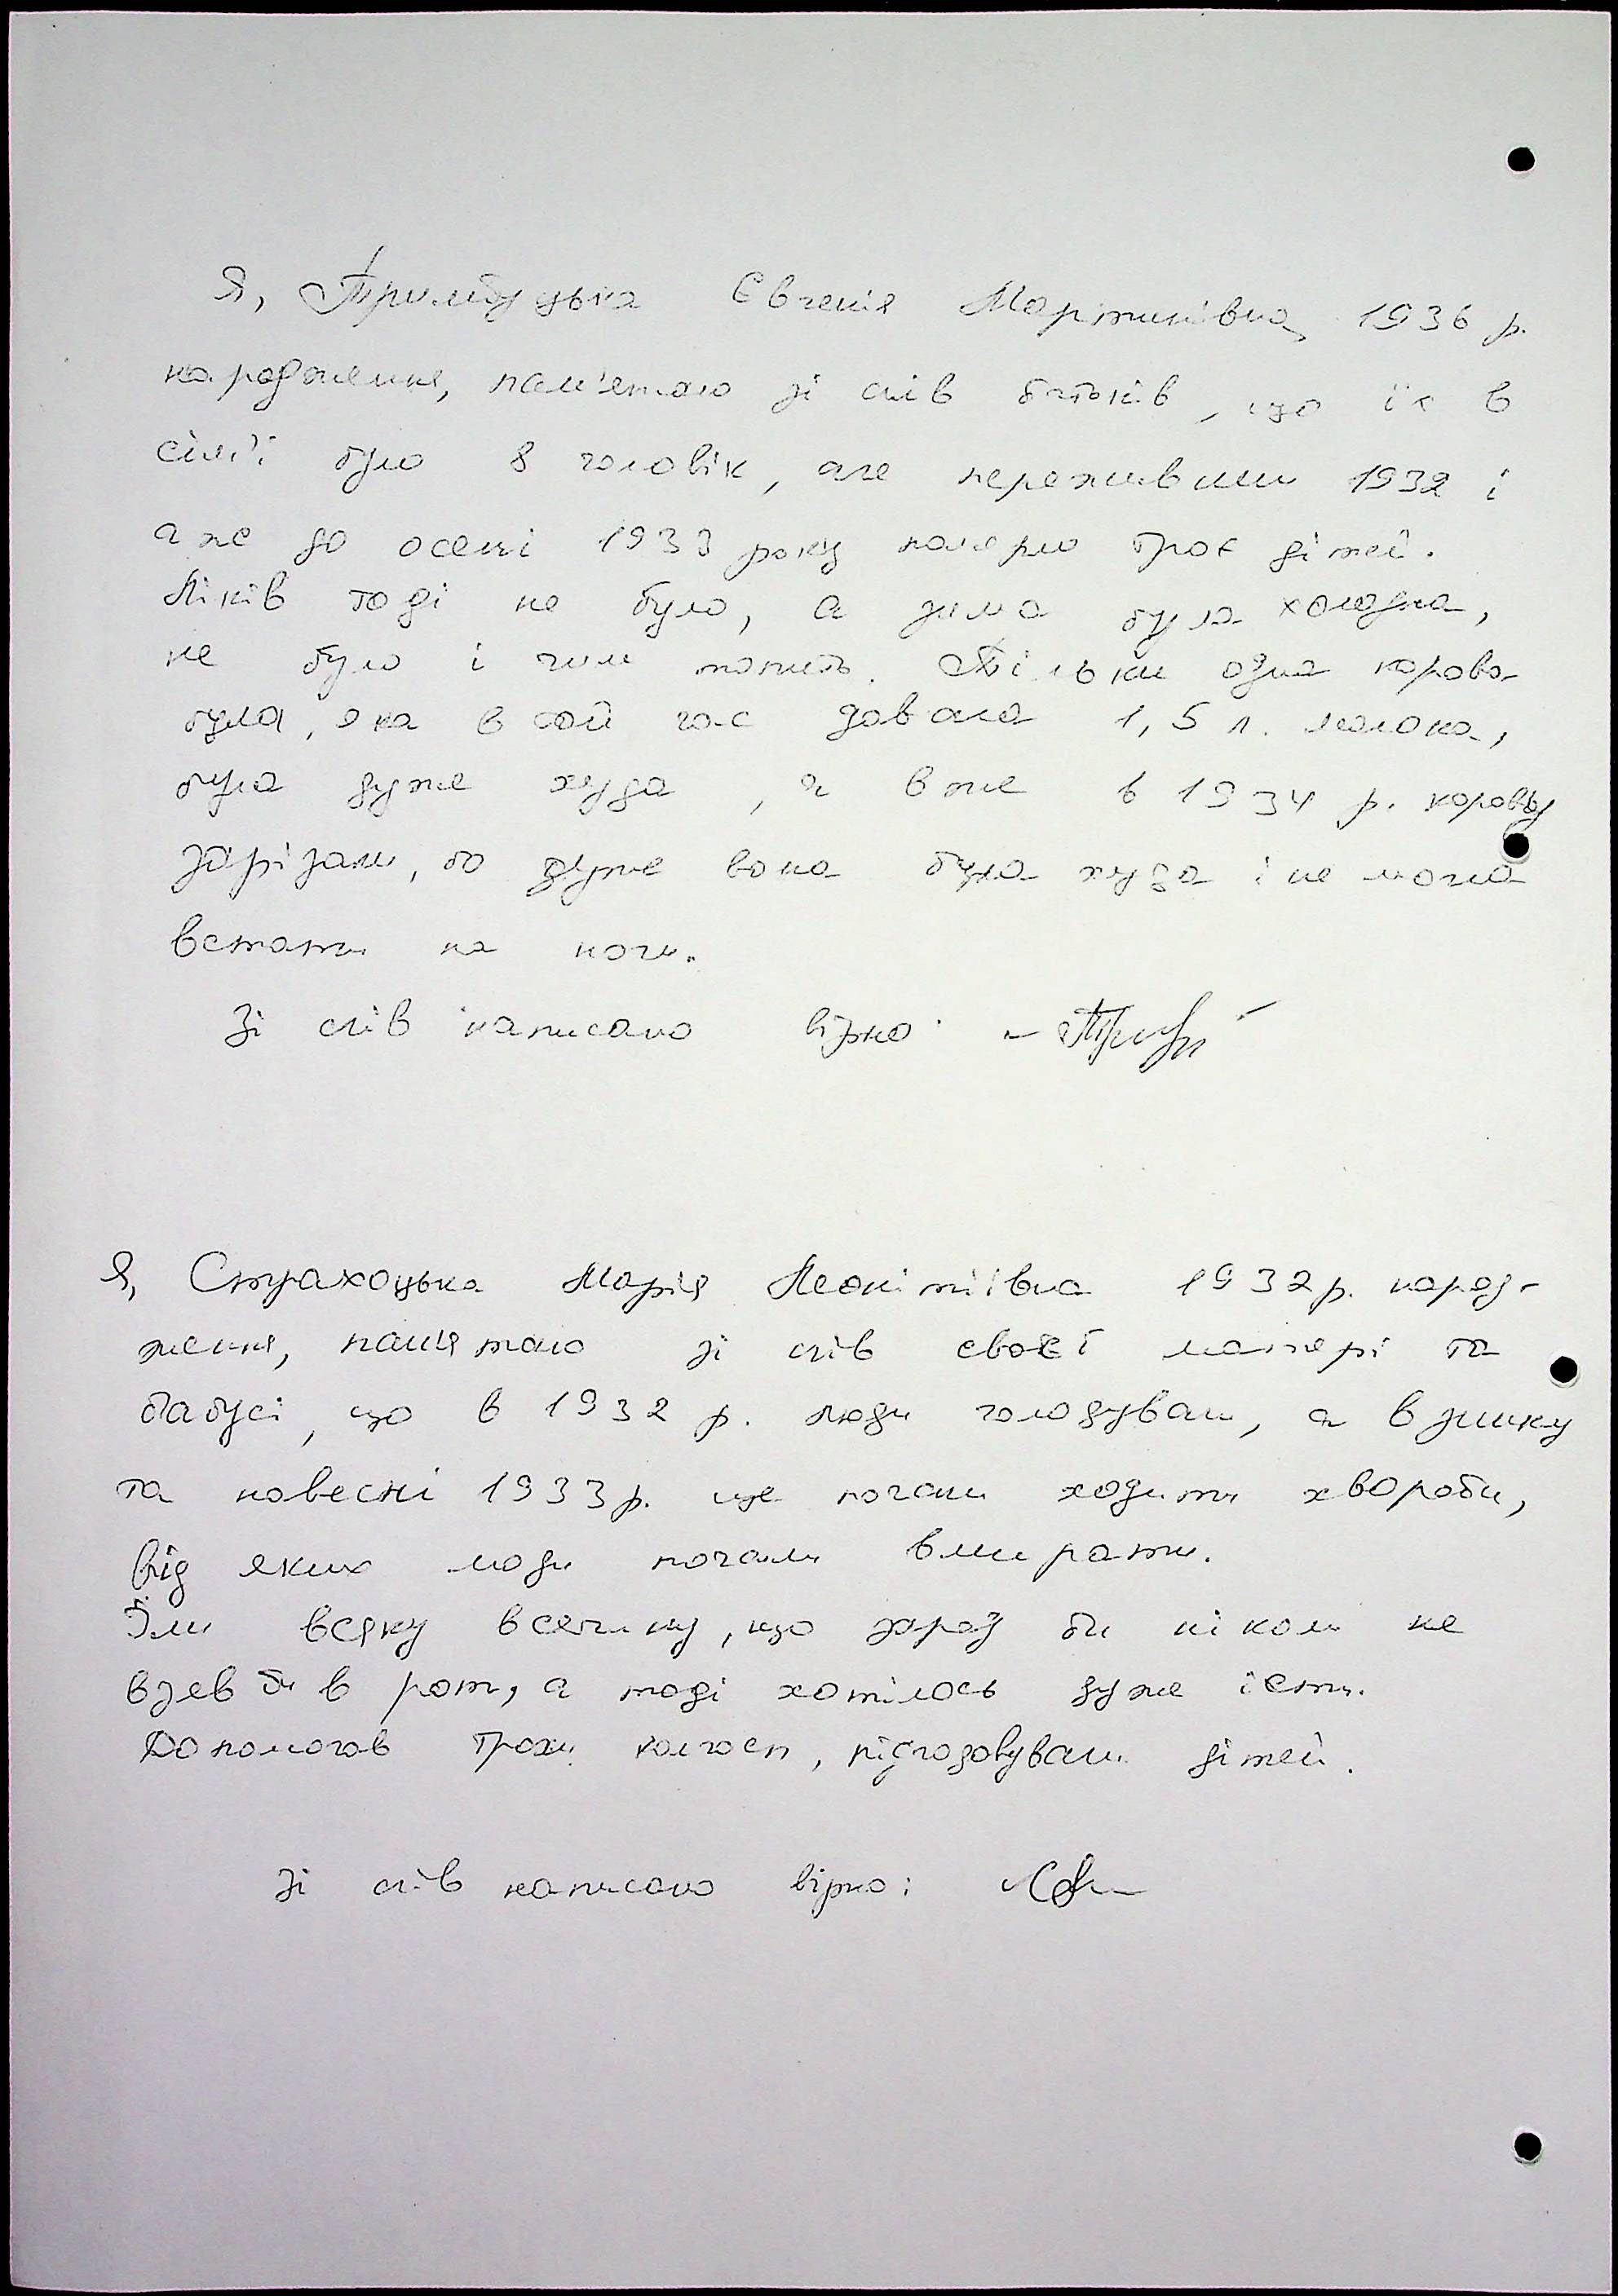 Я, Євгенія Мартинівна, 1936 р.
народження, пам'ятаю зі слів батьків, що їх в
сім'ї було 8 чоловік, але переживши 1932 і
аже до осені 1933 року померло троє дітей.
Ліків тоді не було, а зима була холодна,
не було і чим топить. Тільки одна корова
була, яка в той час давала 1,5 л. молока,
була дуже худа, а вже в 1934 р. корову
зарізали, бо дуже вона була худа і не могла
встати на ноги.
Зі слів написано вірно
Я, Страхоцька Марія 1932 р. народ-
ження, пам'ятаю зі слів своєї матері та
бабусі, що в 1932 р. люди голодували, а взимку
та повесні 1933 р. ще почали ходити хвороби,
від яких люди почали вмирати.
Їли всяку всячину, що зараз би ніколи не
взяв би в рот, а тоді хотілось дуже їсти.
Допомогав трохи колгосп, підгодовували дітей.
Зі слів написано вірно: